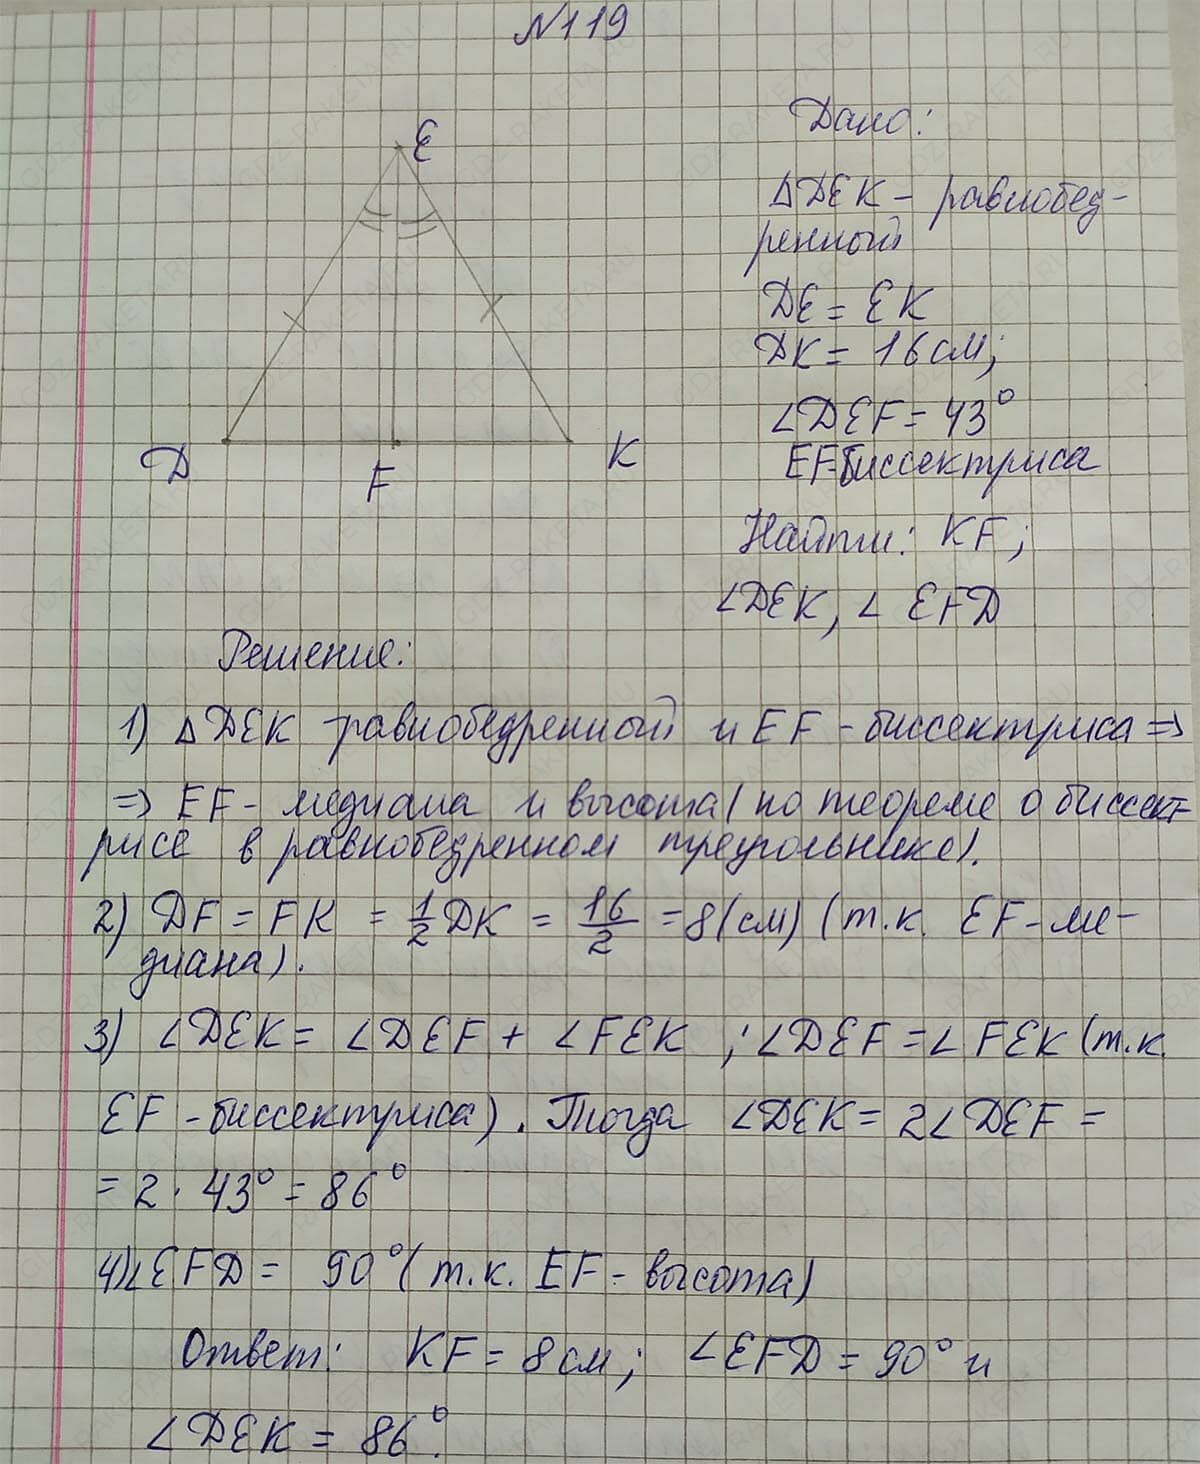 N119
E
D
F
K
Дано:
△DEK - равнобед-
ренный
DE = EK
DK = 16 см;
∠DEF = 43°
EF-биссектриса
Найти: KF;
∠DEK, ∠EFD
Решение:
1) △DEK - равнобедренный и EF - биссектриса =>
=> EF - медиана и высота (по теореме о биссект-
рисе в равнобедренном треугольнике).
2) DF = FK = 1/2 DK = 16/2 = 8 (см) (т.к. EF - ме-
диана).
3) ∠DEK = ∠DEF + ∠FEK ; ∠DEF = ∠FEK (т.к.
EF - биссектриса). Тогда ∠DEK = 2∠DEF =
= 2 · 43° = 86°
4) ∠EFD = 90° (т.к. EF - высота)
Ответ: KF = 8 см; ∠EFD = 90° и
∠DEK = 86°.